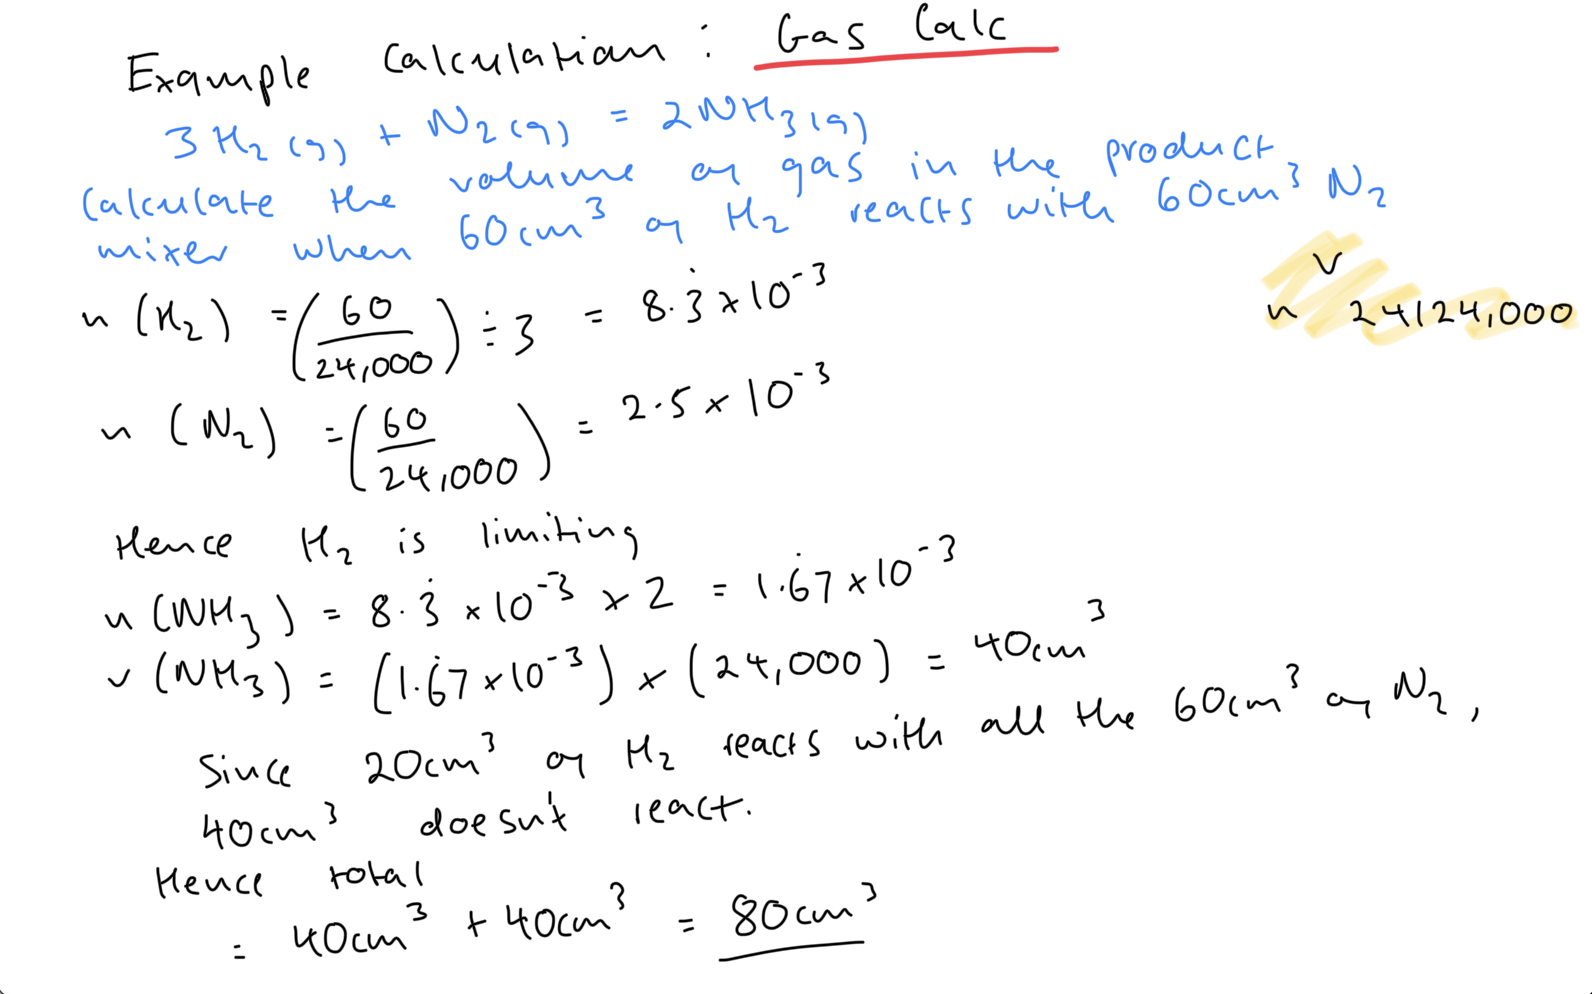 Example Calculation : Gas Calc
3H₂(g) + N₂(g) = 2NH₃(g)
Calculate the volume of gas in the product
mixer when 60cm³ of H₂ reacts with 60cm³ N₂
v
n 24/24,000
n (H₂) = (60/24,000) ÷ 3 = 8.3̇ × 10⁻³
n (N₂) = (60/24,000) = 2.5 × 10⁻³
Hence H₂ is limiting
n (NH₃) = 8.3̇ × 10⁻³ × 2 = 1.6̇7 × 10⁻³
v (NH₃) = (1.6̇7 × 10⁻³) × (24,000) = 40cm³
Since 20cm³ of H₂ reacts with all the 60cm³ of N₂,
40cm³ doesn't react.
Hence total
= 40cm³ + 40cm³ = 80cm³